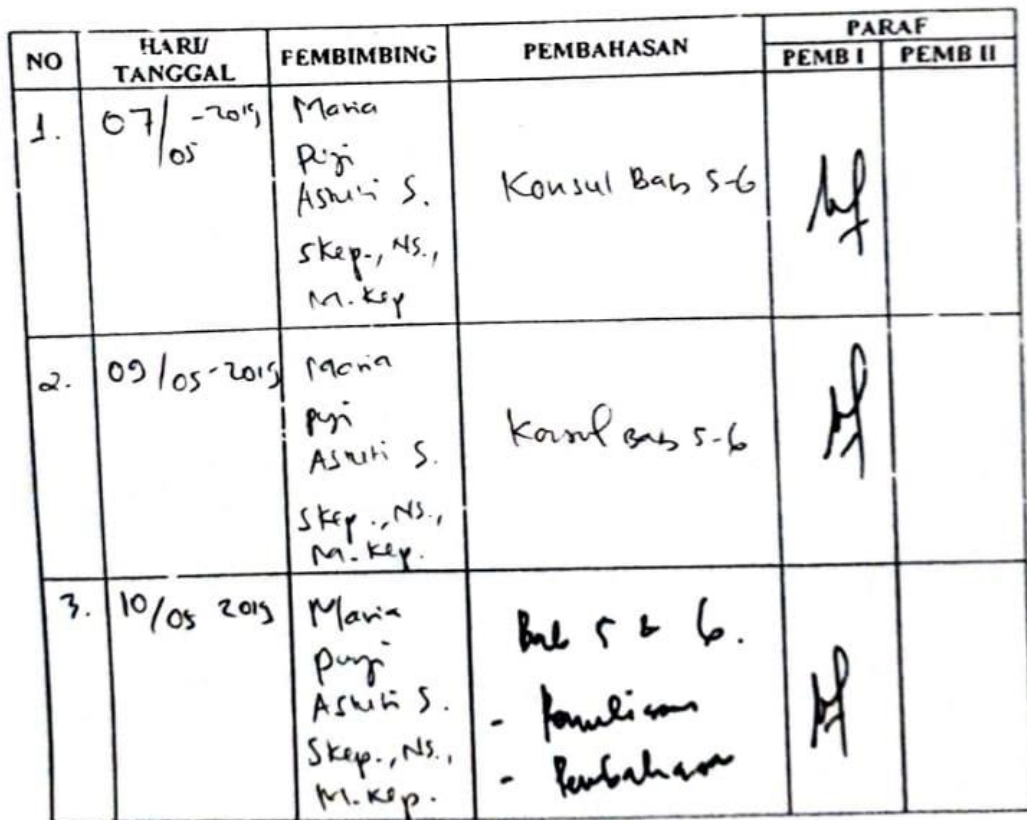 NO HARI/ TANGGAL PEMBIMBING PEMBAHASAN PARAF
PEMB I PEMB II
1. 07/05-2019 Maria
Puji
Astuti S.
Skep., Ns.,
M.Kep
Konsul Bab 5-6
2. 09/05-2019 Maria
Puji
Astuti S.
Skep., Ns.,
M.Kep.
Konsul Bab 5-6
3. 10/05 2019 Maria
Puji
Astuti S.
Skep., Ns.,
M.Kep.
Bab 5 & 6.
- Penulisan
- Pembahasan